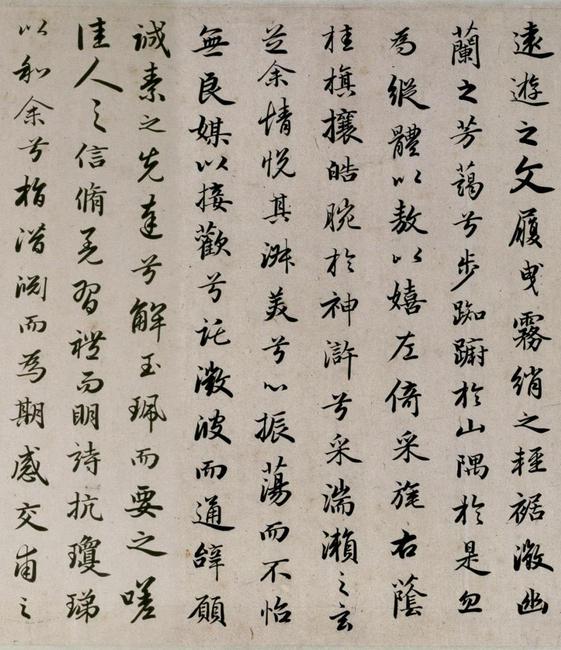 遠遊之文履曳霧綃之輕裾微幽
蘭之芳藹兮步踟躕於山隅於是忽
焉縱體以敖以嬉左倚采旄右蔭
桂旗攘皓腕於神滸兮采湍瀨之玄
芝余情悅其淑美兮心振蕩而不怡
無良媒以接歡兮託微波而通辭願
誠素之先達兮解玉珮而要之嗟
佳人之信脩羌習禮而明詩抗瓊珶
以和余兮指潛淵而為期感交甫之